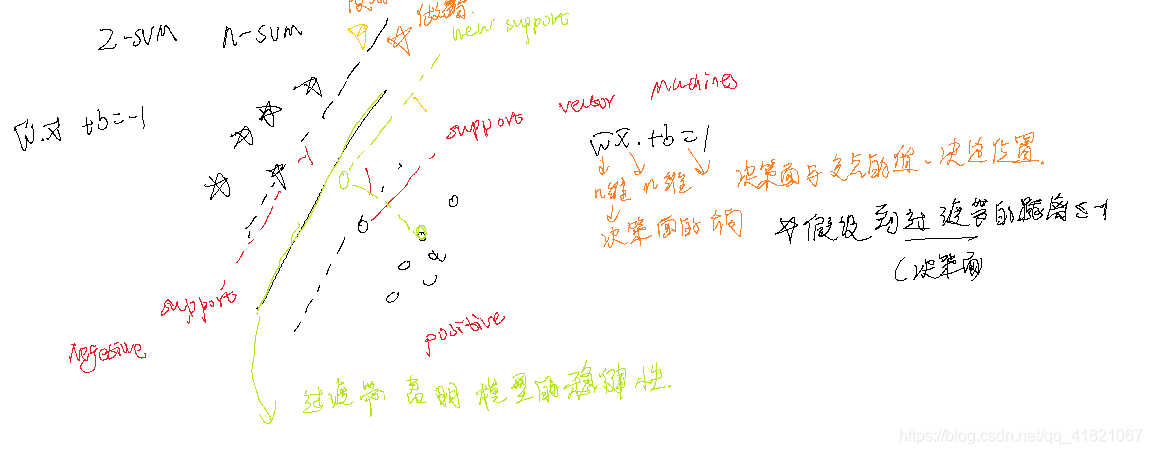 2-svm n-svm
做错
new support
w·x +b=-1
support vector machines
wx·+b=1
n维 n维
决策面的
决策面与交点的值,决定位置.
假设到过渡带的距离≤1
(决策面
supports
Negesive
positive
过渡带 表明 模型的稳健性.
https://blog.csdn.net/qq_41821067